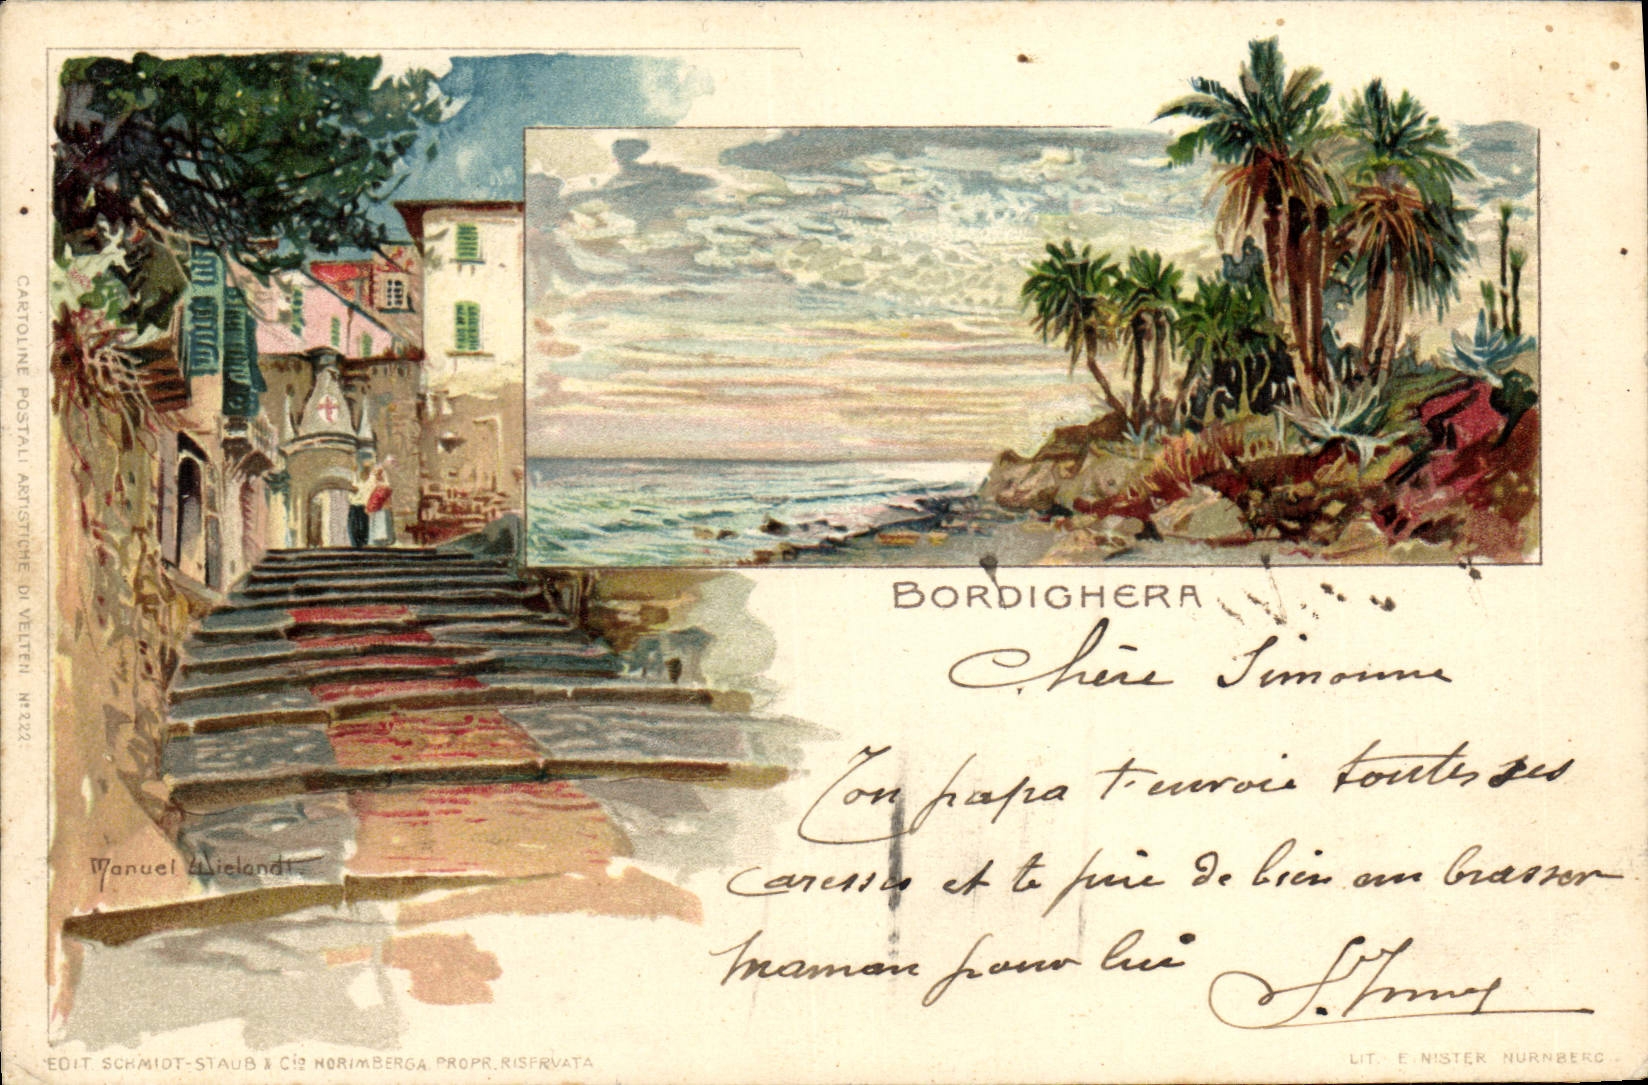 BORDIGHERA
Chère Simonne
Ton papa t'envoie toutes ses
caresses et te prie de bien embrasser
maman pour lui
Manuel Wielandt.
CARTOLINE POSTALI ARTISTICHE DI VELTEN Nº 222.
EDIT. SCHMIDT-STAUB & Cio NORIMBERGA. PROPR. RISERVATA
LIT. E. NISTER NURNBERG.